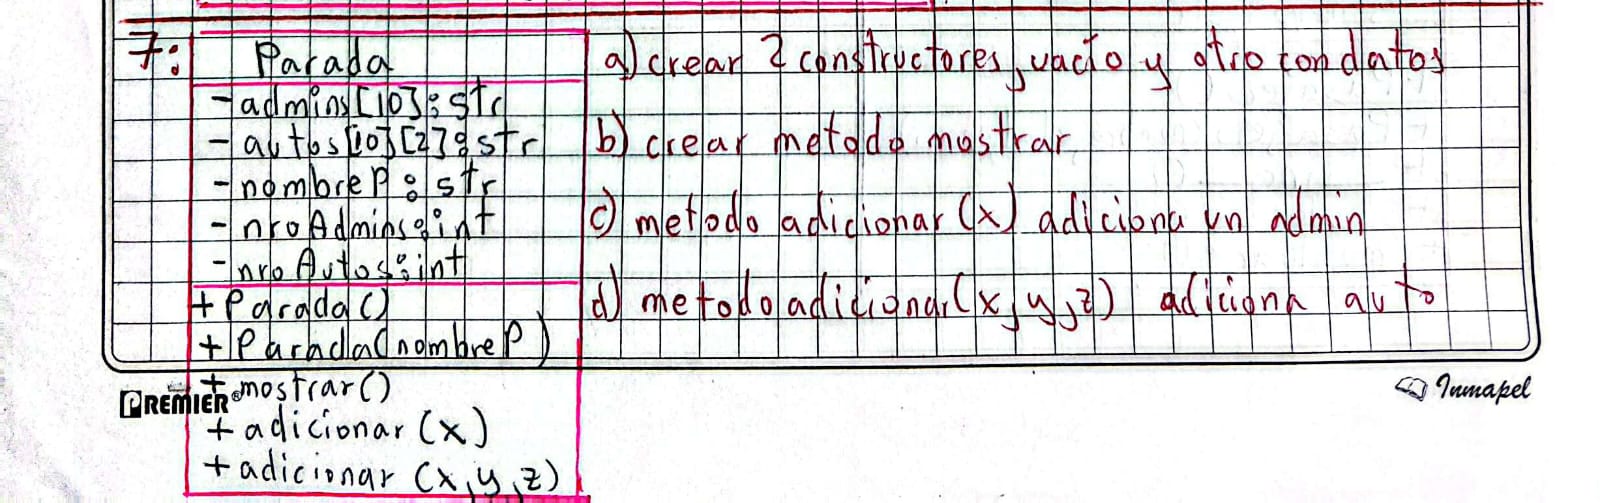 7:
Parada
- admins[10]: str
- autos[10][2]: str
- nombreP: str
- nroAdmins: int
- nroAutos: int
+ Parada()
+ Parada(nombreP)
+ mostrar()
+ adicionar (x)
+ adicionar (x,y,z)
a) crear 2 constructores, vacío y otro con datos
b) crear metodo mostrar
c) metodo adicionar (x) adiciona un admin
d) metodo adicionar(x,y,z) adiciona auto
PREMIER®
Inmapel